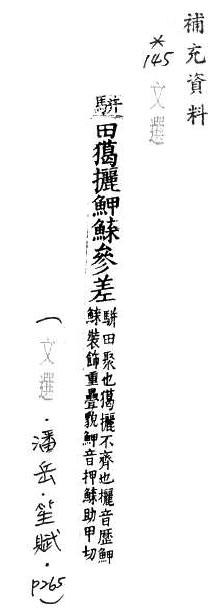 補充資料
*145 文選
駢田獦攦魻參差
駢田聚也獦攦不齊也攦音歷魻
裝飾重疊貌魻音押助甲切
(文選·潘岳·笙賦·P265)